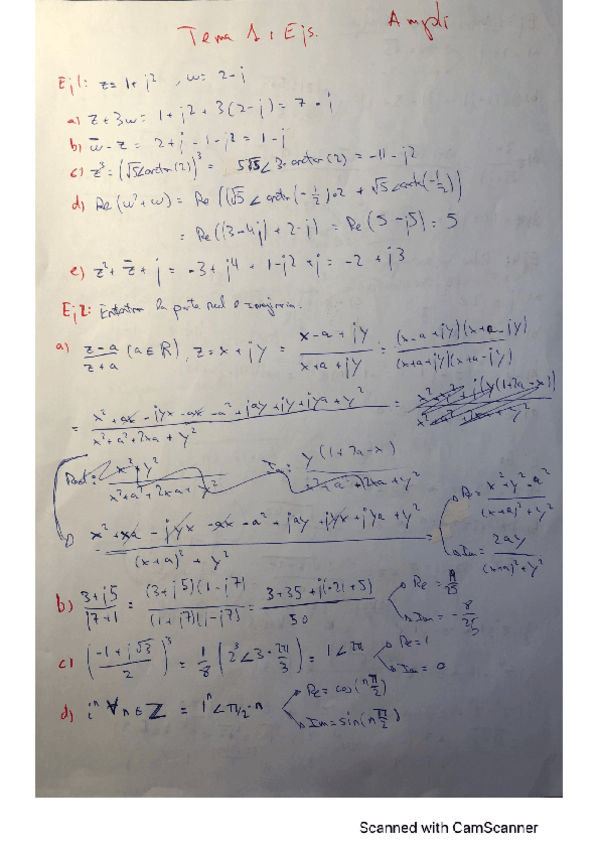 Tema 1: Ejs. Ampli
Ej1: z = 1+j2, w = 2-j
a) z+3w = 1+j2+3(2-j) = 7-j
b) w̄-z = 2+j-1-j2 = 1-j
c) z³ = (√5∠arctan(2))³ = 5√5∠3·arctan(2) = -11-j2
d) Re(w²+w) = Re((√5∠arctn(-1/2))^2 + √5∠arctn(-1/2))
= Re((3-4j)+2-j) = Re(5-j5) = 5
e) z²+z̄+j = -3+j4+1-j2+j = -2+j3
Ej2: la parte real o imaginaria.
a) (z-a)/(z+a) (a∈ℝ), z=x+jy = (x-a+jy)/(x+a+jy) = (x-a+jy)(x+a-jy)/(x+a+jy)(x+a-jy)
= (x²+ax-jyx-ax-a²+jay+jyx+jya+y²)/(x²+a²+2xa+y²) =
Real: (x²+y²)/(x²+a²+2xa+y²) Im: y(1+2a-x)/(x²+a²+2xa+y²)
(x²+xa-jyx-ax-a²+jay+jyx+jya+y²)/((x+a)²+y²) = Re = (x²+y²-a²)/((x+a)²+y²)
Im = 2ay/((x+a)²+y²)
b) (3+j5)/(j7+1) = (3+j5)(1-j7)/(1+j7)(1-j7) = (3+35+j(-21+5))/50 Re = 19/25
Im = -8/25
c) ((-1+j√3)/2)³ = 1/8(2³∠3·2π/3) = 1∠2π Re=1
Im = 0
d) iⁿ ∀n∈ℤ = 1ⁿ∠π/2·n Re = cos(nπ/2)
Im = sin(nπ/2)
Scanned with CamScanner